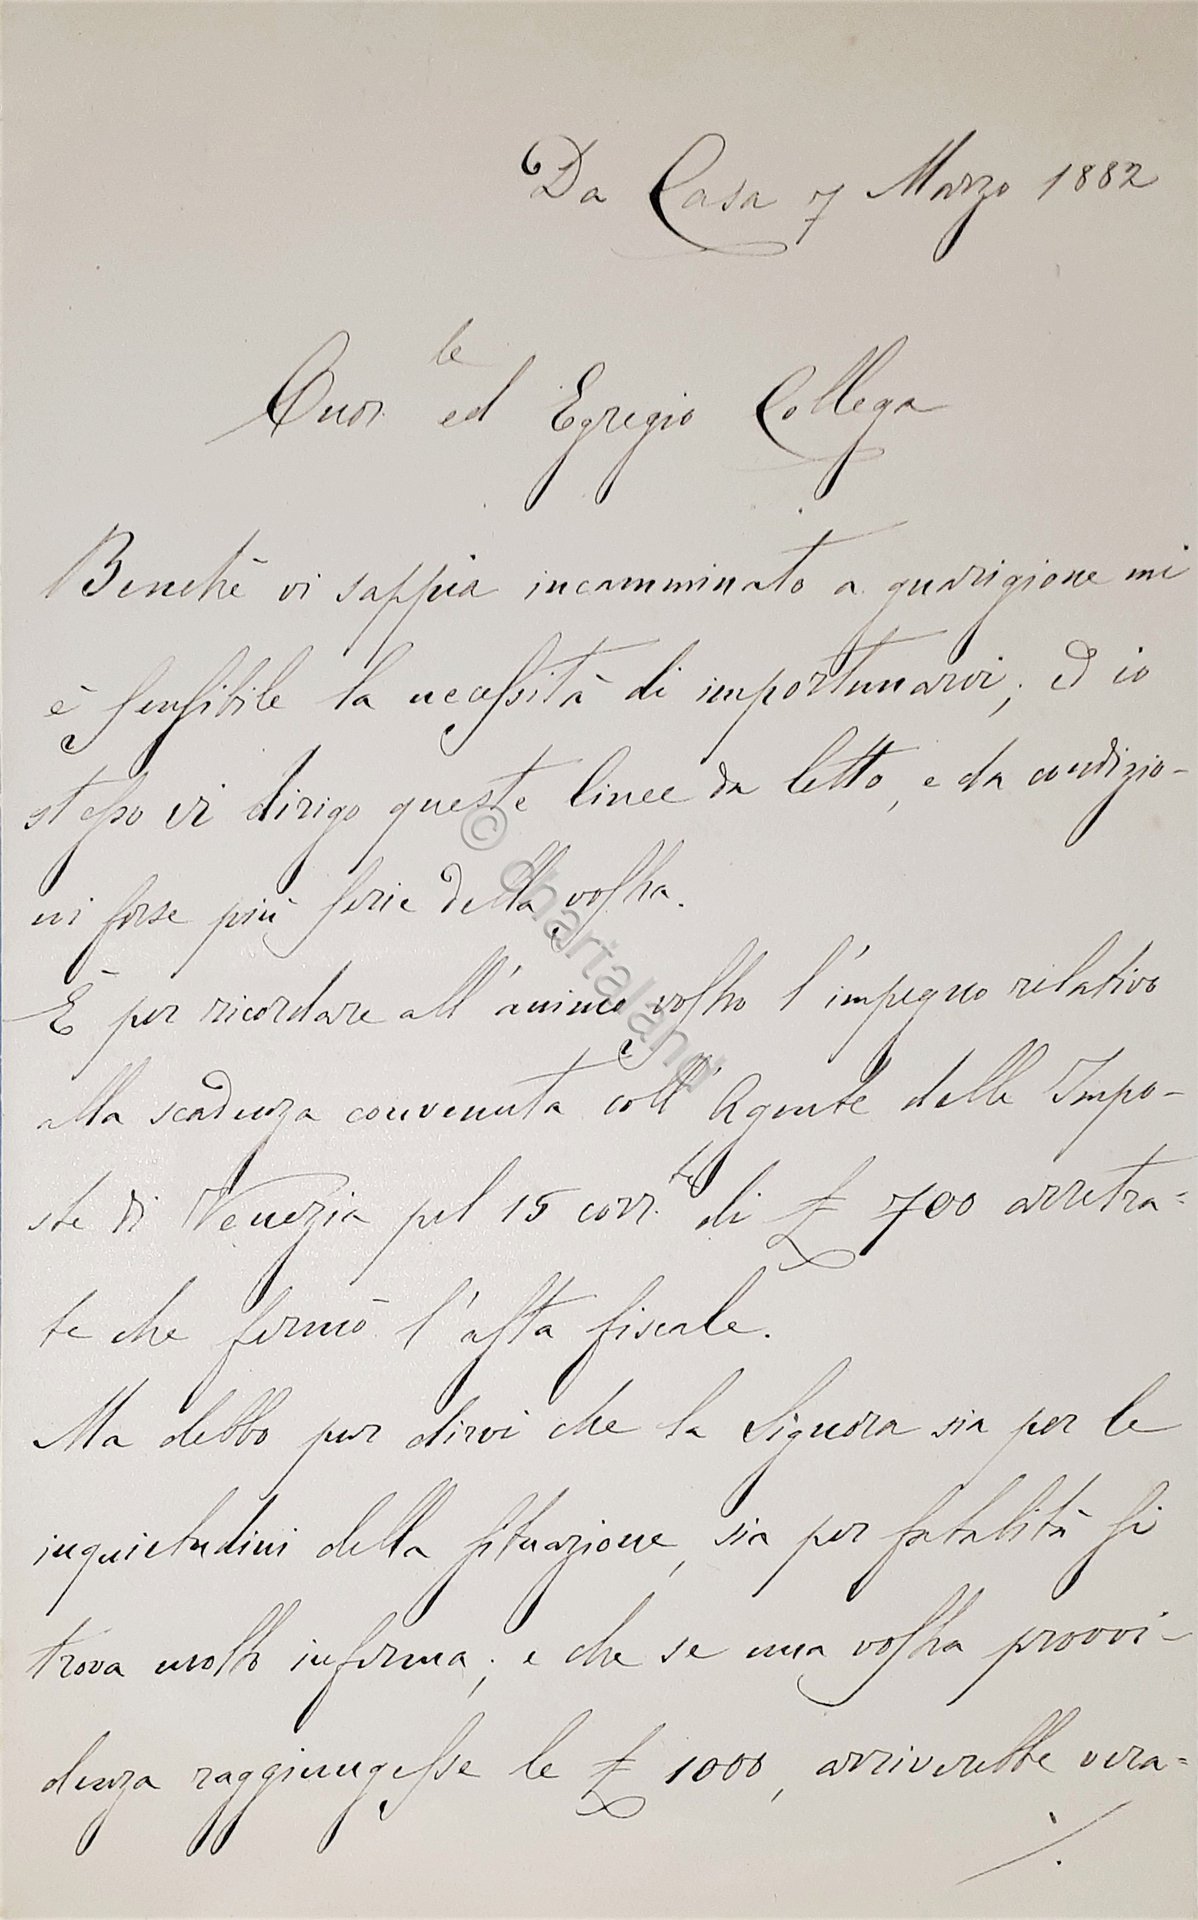 Da Casa 7 Marzo 1882
Onor.le ed Egregio Collega
Benchè vi sappia incamminato a guarigione mi
è sensibile la necessità di importunarvi; ed io
stesso vi dirigo queste linee da letto, e da condizio-
ni forse più serie della vostra.
È per ricordare all'animo vostro l'impegno relativo
alla scadenza convenuta coll'Agente delle Impo-
ste di Venezia pel 15 corr.te di £ 700 arretra=
te che fermò l'asta fiscale.
Ma debbo pur dirvi che la Signora sia per le
inquietudini della situazione, sia per fatalità si
trova molto inferma; e che se una vostra provvi-
denza raggiungesse le £ 1000, arriverebbe vera=
./.
© chartaland